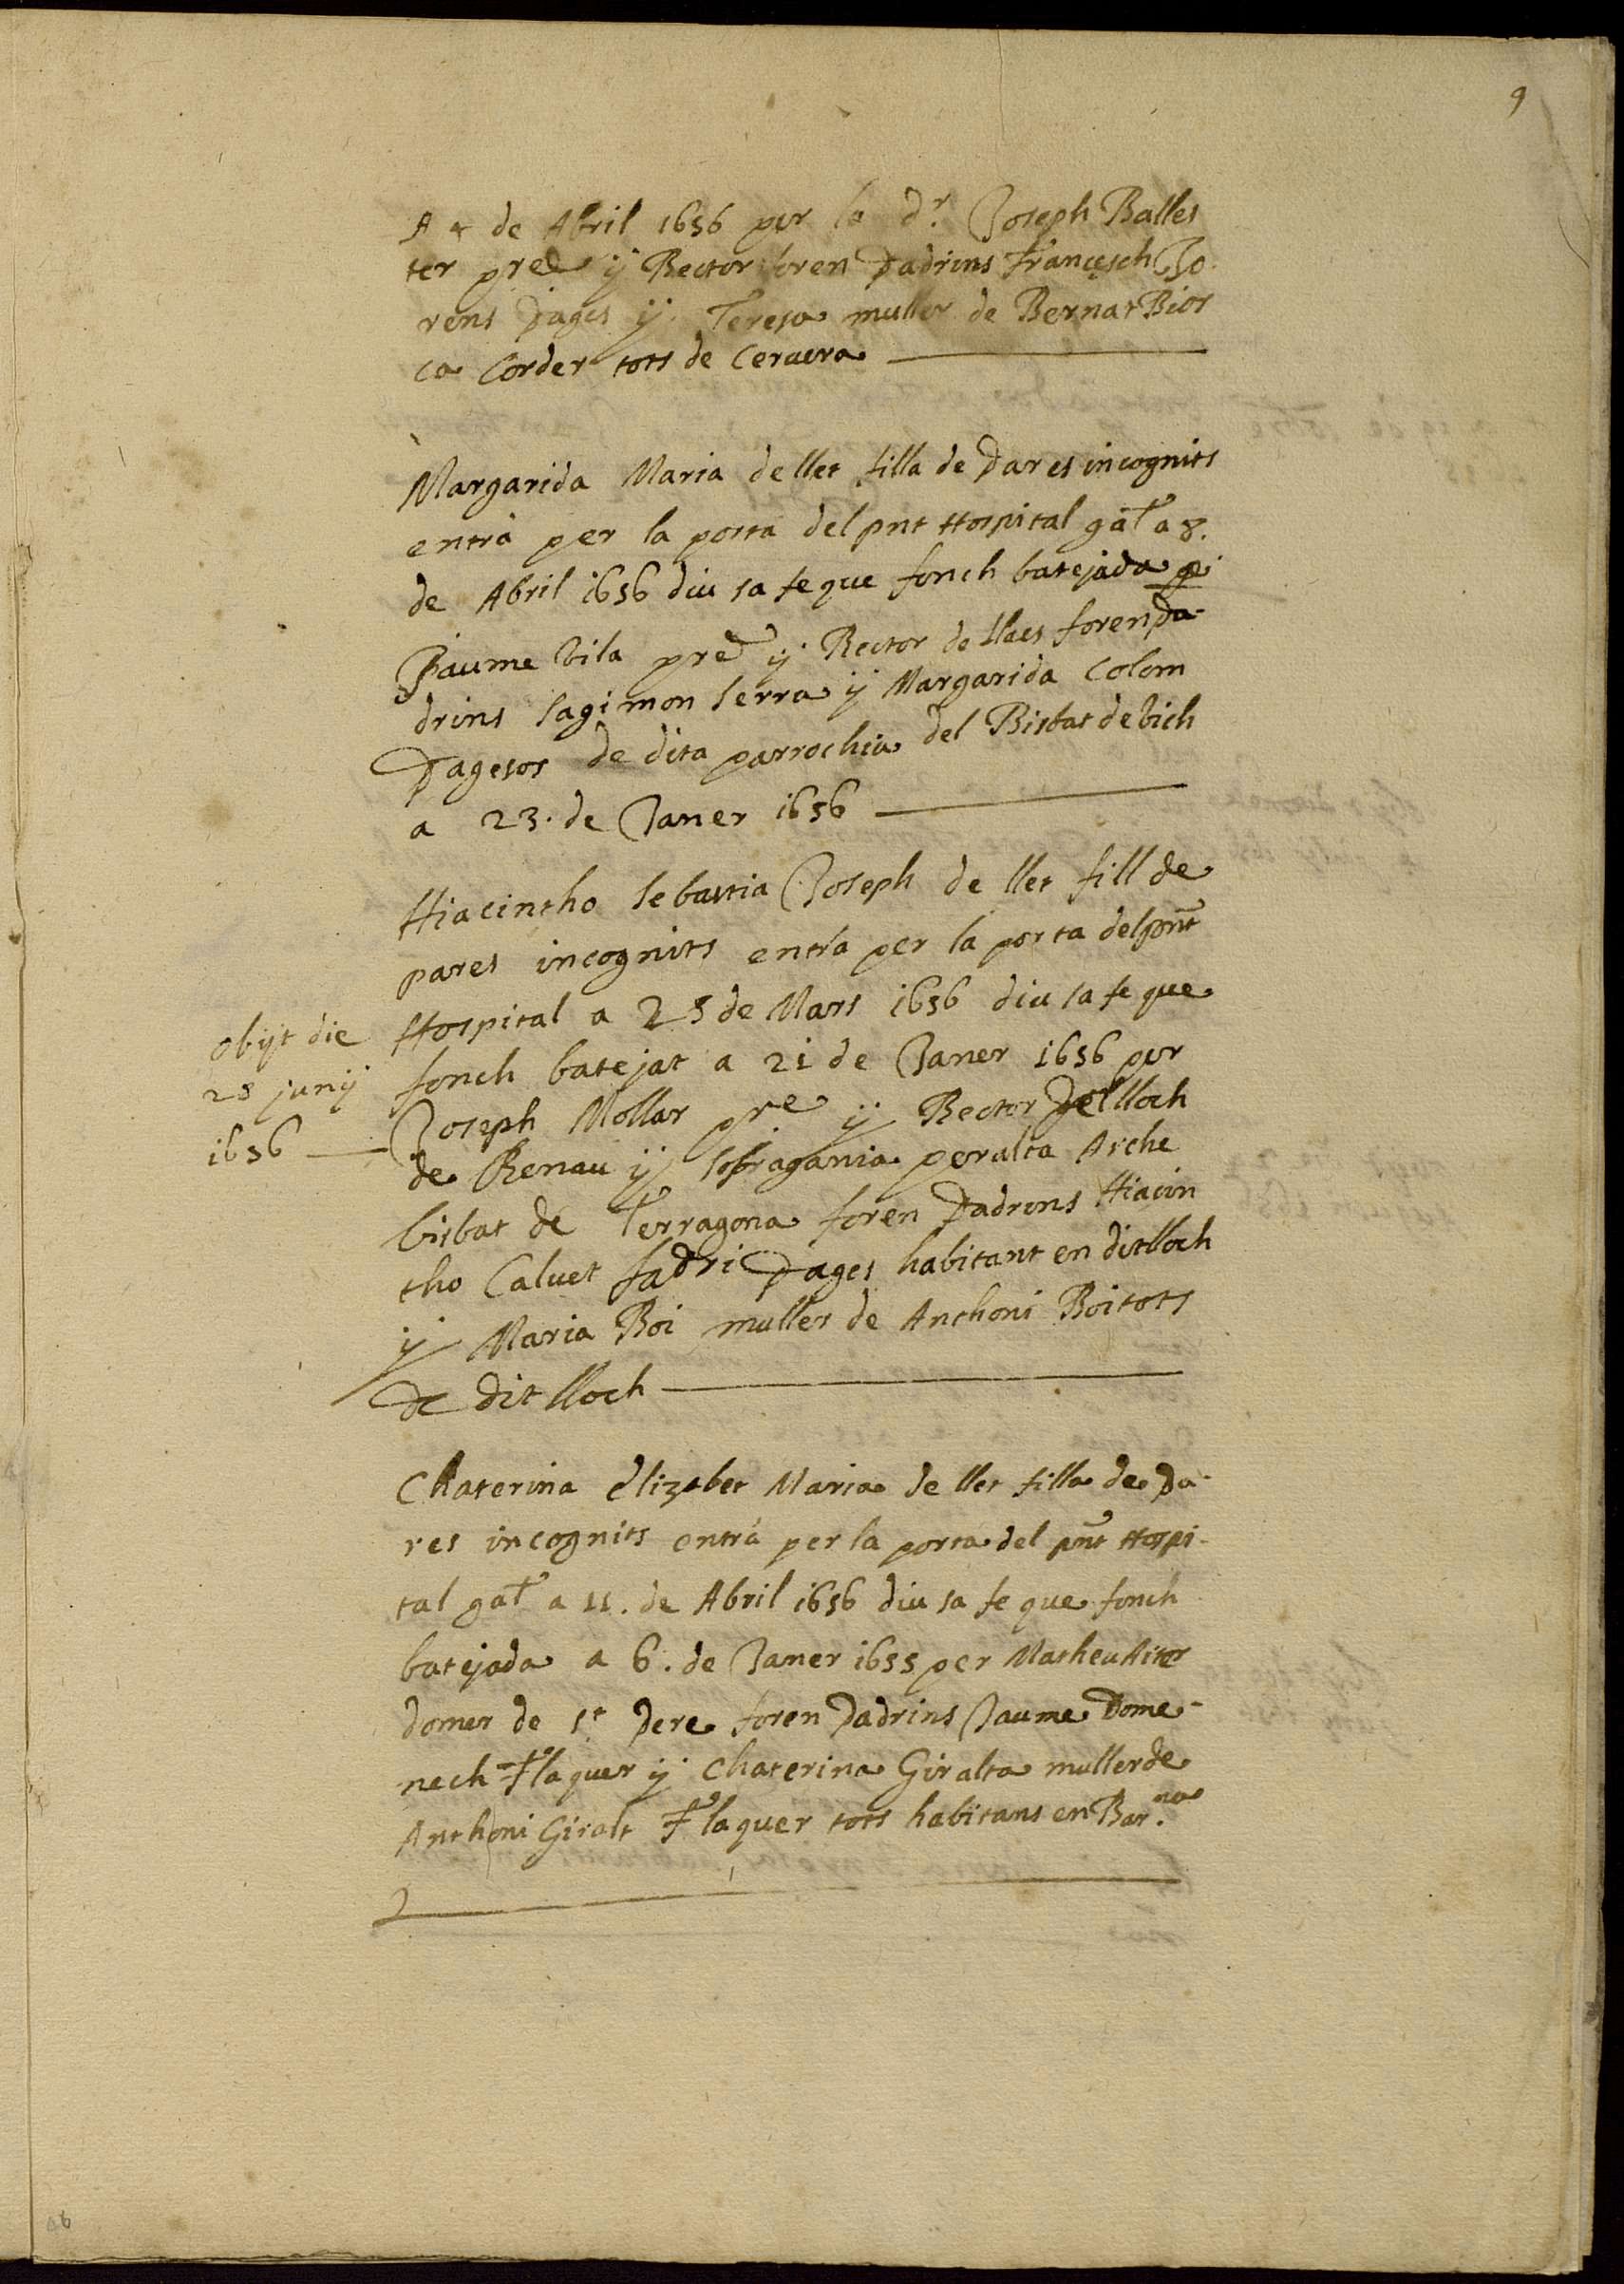 9
A 4 de Abril 1656 per lo dr. Joseph Balles
ter pre y Rector foren Padrins Francesch Jo
rens Pages y Teresa muller de Bernat Bios
ca Corder tots de Cervera
Margarida Maria de llet filla de Pares incognits
entrà per la porta del pnt Hospital gal a 8.
de Abril 1656 diu sa fe que fonch batejada p
Jaume Vila pre y Rector de llaes foren Pa-
drins Sagimon Serra y Margarida Colom
Pagesos de dita parrochia del Bisbat de Vich
a 23. de Janer 1656
Hiacintho Sebastia Joseph de llet fill de
pares incognits entrà per la porta del pnt
Hospital a 25 de Mars 1656 diu sa fe que
fonch batejat a 21 de Janer 1656 per
Joseph Mollar pre y Rector del lloch
de Renau y sofragania peralta Arche
bisbat de Terragona foren Padrins Hiacin
tho Calvet fadri Pages habitant en dit lloch
y Maria Boi muller de Anthoni Boi tots
de dit lloch
obijt die
28 junij
1656
Chaterina Elizabet Maria de llet filla de Pa-
res incognits entrà per la porta del pnt Hospi-
tal gal a 11. de Abril 1656 diu sa fe que fonch
batejada a 6. de Janer 1655 per Matheu
domer de St Pere foren Padrins Jaume Dome-
nech Flaquer y Chaterina Giralta muller de
Anthoni Giralt Flaquer tots habitans en Bar.na
46